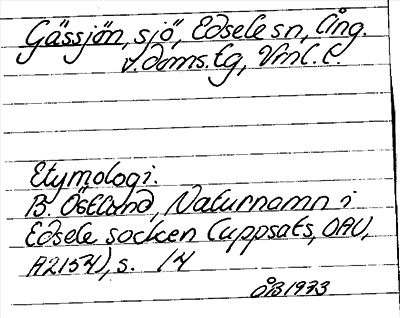 Gässjön, sjö, Edsele sn, Ång.
v. doms.tg, Vml. l.
Etymologi.
B. Östlund, Naturnamn i
Edsele socken (uppsats, OAU,
A2154), s. 14
ÅB 1973